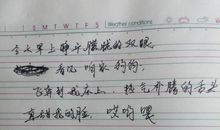 S M T W T F S Weather conditions
今天早上睁开朦胧的双眼
看见 咱家狗狗
飞奔到我床上，热气升腾的舌头
真甜我的脸，哎哟喂